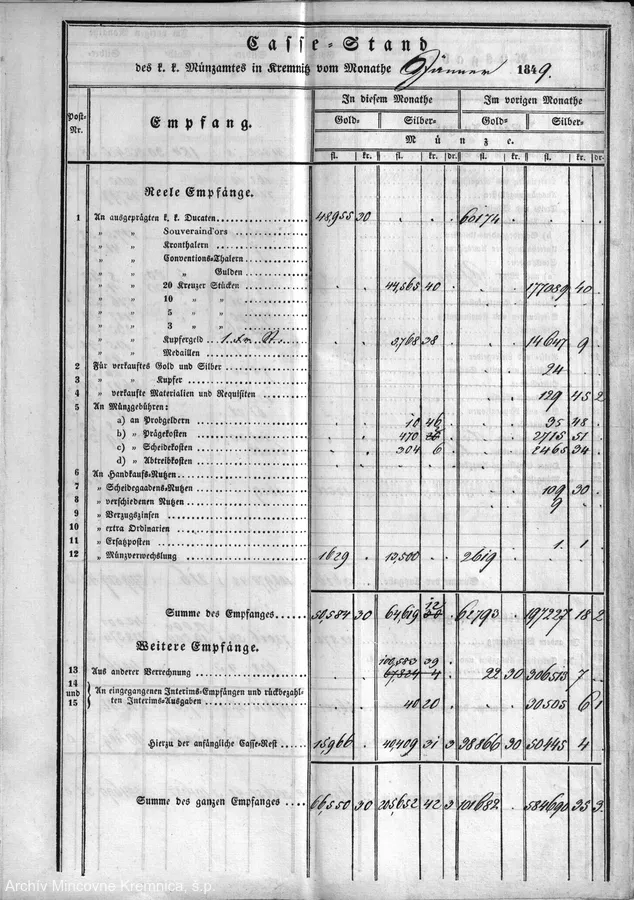 Casse-Stand
des k. k. Münzamtes in Kremnitz vom Monathe Jänner 1849.
Post-Nr.
Empfang.
In diesem Monathe
Im vorigen Monathe
Gold-
Silber-
Gold-
Silber-
Münze.
fl. kr. fl. kr. dr. fl. kr. fl. kr. dr.
Reele Empfänge.
1 An ausgeprägten k. k. Ducaten 48,955 30 . . . 60174 . . . .
„ „ Souveraind'ors
„ „ Kronthalern
„ „ Conventions-Thalern
„ „ „ Gulden
„ „ 20 Kreuzer Stücken . . 44,565 40 . . . 177089 40 .
„ „ 10 „ „
„ „ 5 „ „
„ „ 3 „ „
„ „ Kupfergeld 1 . . 5,768 38 . . 14647 9 .
„ „ Medaillen
2 Für verkauftes Gold und Silber 24
3 „ „ Kupfer
4 „ verkaufte Materialien und Requisiten 129 45 2
5 An Münzgebühren:
a) an Probgeldern 10 46 35 48
b) „ Prägekosten 470 2715 51
c) „ Scheidekosten 304 6 2465 34
d) „ Abtreibkosten
6 An Handkaufs-Nutzen
7 „ Scheidegaadens-Nutzen 109 30
8 „ verschiedenen Nutzen 9
9 „ Verzugszinsen
10 „ extra Ordinarien
11 „ Ersatzposten 1 1
12 „ Münzverwechslung 1629 . 13,500 . . 2619
Summe des Empfanges 50,584 30 64,619 12 62793 . 197227 18 2
Weitere Empfänge.
100,583 39
13 Aus anderer Verrechnung 67,824 4 22 30 306513 7
14 und 15 An eingegangenen Interims-Empfängen und rückbezahlten Interims-Ausgaben 40 20 30505 6 1
Hierzu der anfängliche Casse-Rest 15,966 . 40,409 31 3 38866 30 50445 4
Summe des ganzen Empfanges 66,550 30 205,652 42 3 101682 . 584690 35 3
Archív Mincovne Kremnica, š.p.